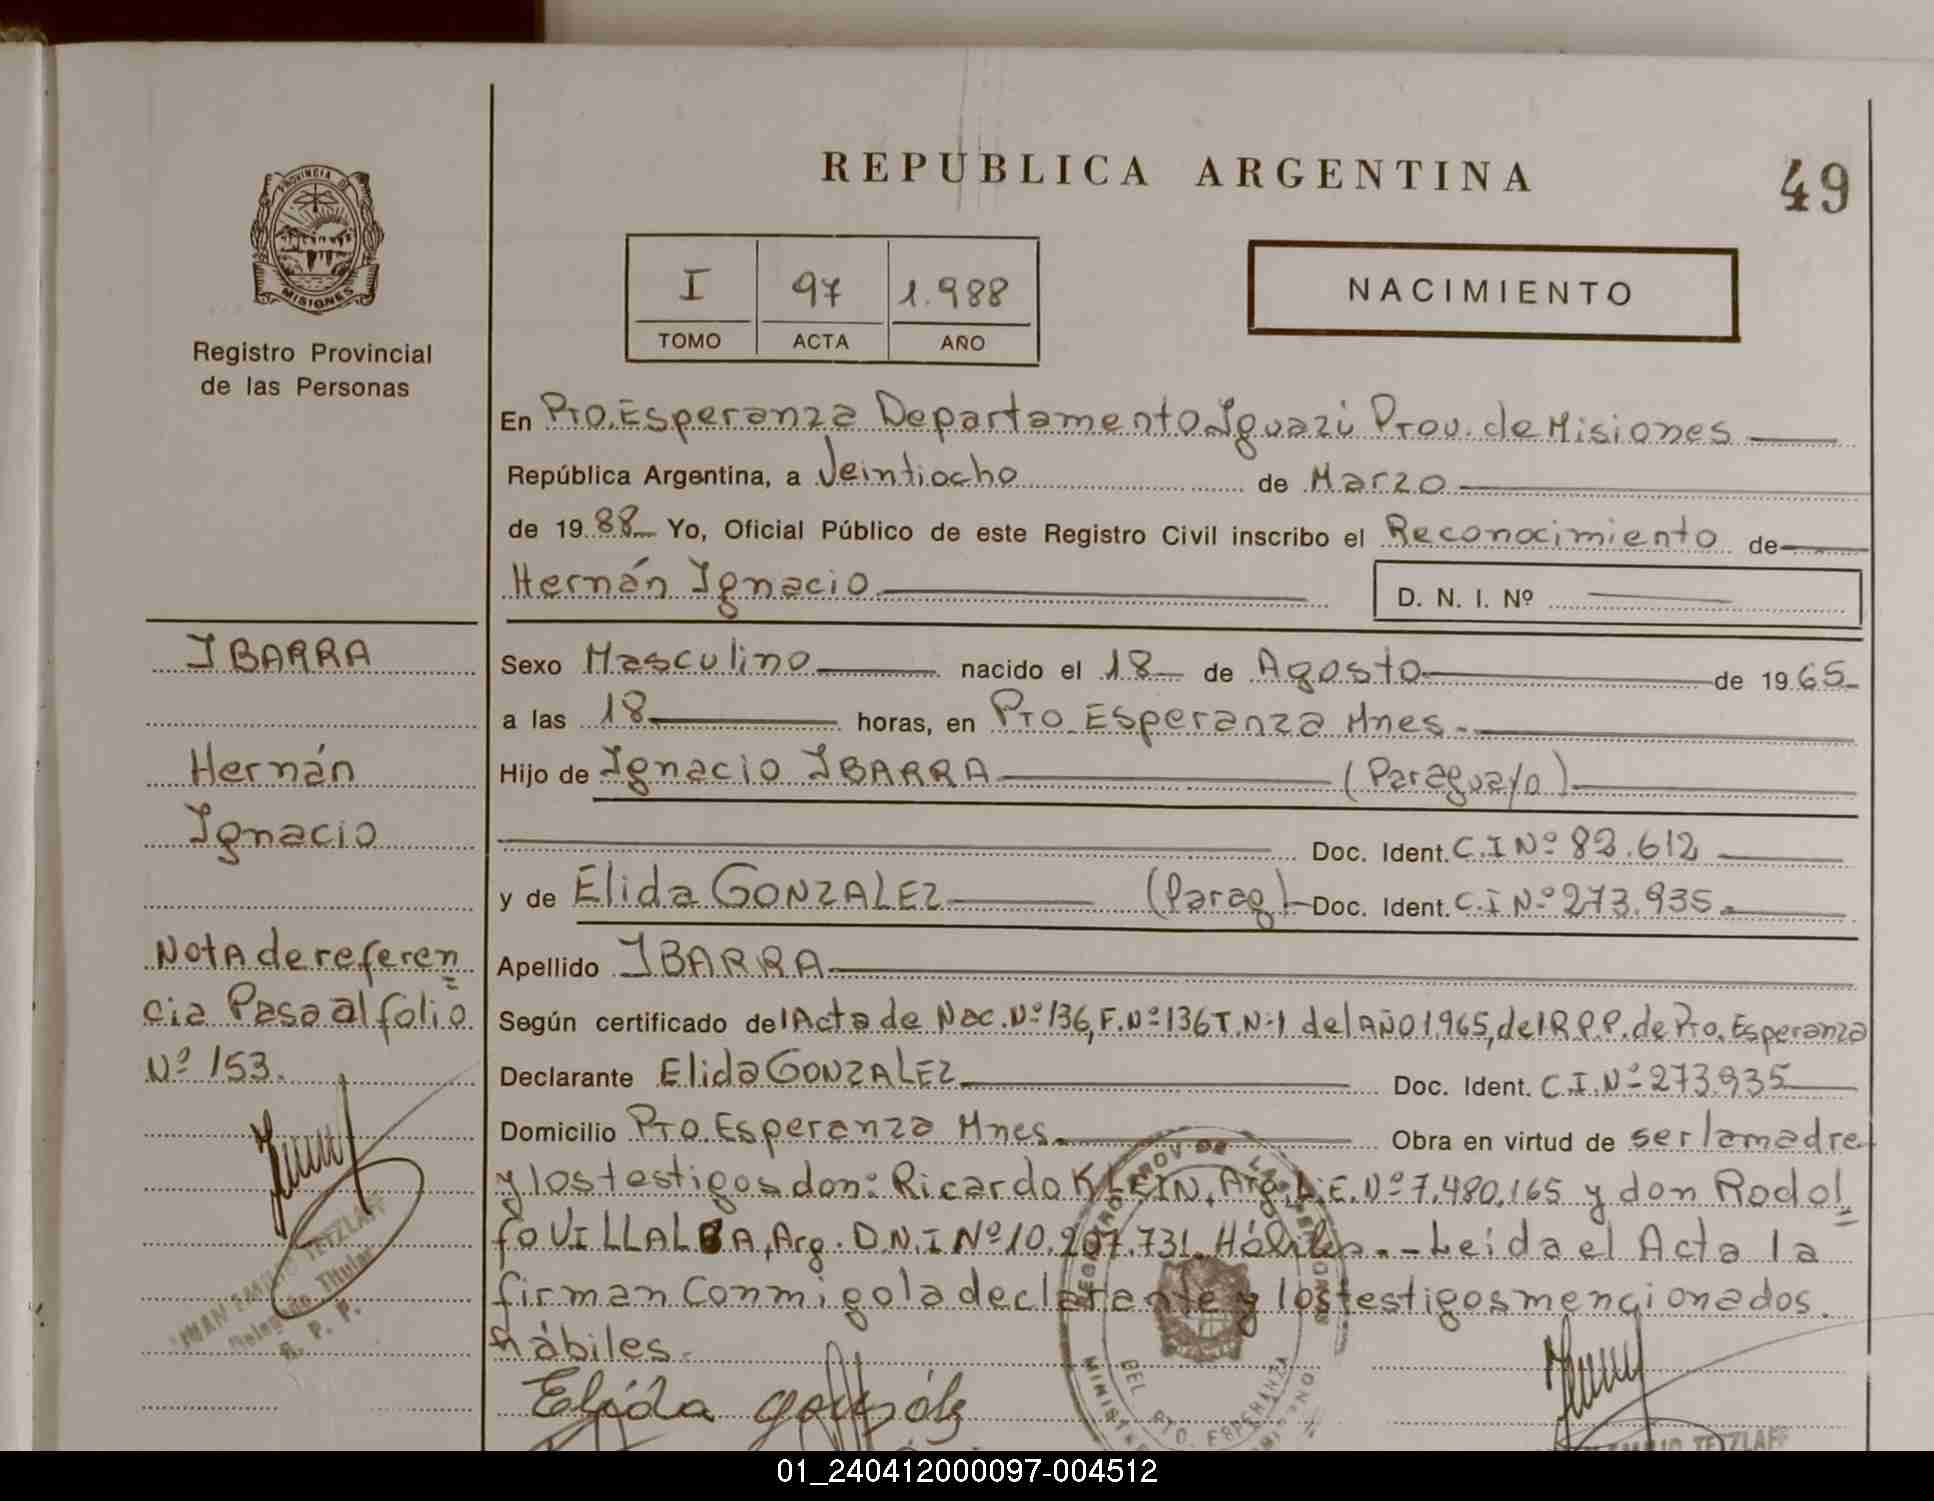 REPUBLICA ARGENTINA
49
PROVINCIA DE
MISIONES
Registro Provincial
de las Personas
I 97 1.988
TOMO ACTA AÑO
NACIMIENTO
En Pto. Esperanza Departamento Iguazú Prov. de Misiones
República Argentina, a Veintiocho de Marzo
de 19 88 Yo, Oficial Público de este Registro Civil inscribo el Reconocimiento de
Hernán Ignacio
D. N. I. Nº
IBARRA
Hernán
Ignacio
Sexo Masculino nacido el 18 de Agosto de 19 65
a las 18 horas, en Pto Esperanza Mnes.
Hijo de Ignacio IBARRA (Paraguayo)
Doc. Ident. C.I Nº 82.612
y de Elida GONZALEZ (Parag) Doc. Ident. C.I Nº 273.935.
Apellido IBARRA
Según certificado del Acta de Nac. Nº 136, F. Nº 136 T. Nº 1 del AÑO 1.965, del R.P.P. de Pto. Esperanza
Declarante Elida GONZALEZ Doc. Ident. C.I. Nº 273.935
Domicilio Pto. Esperanza Mnes. Obra en virtud de ser la madre
y los testigos don: Ricardo KLEIN, Arg. L.E. Nº 7.480.165 y don Rodol
fo VILLALBA, Arg. D.N.I Nº 10.207.731. Hábiles. - Leida el Acta la
firman conmigo la declarante y los testigos mencionados
hábiles.
Nota de referen
cia Pasa al folio
Nº 153.
Elida González
TETZLAFF
Titular
R. P. P.
DEL PTO. ESPERANZA
TETZLAFF
01_240412000097-004512